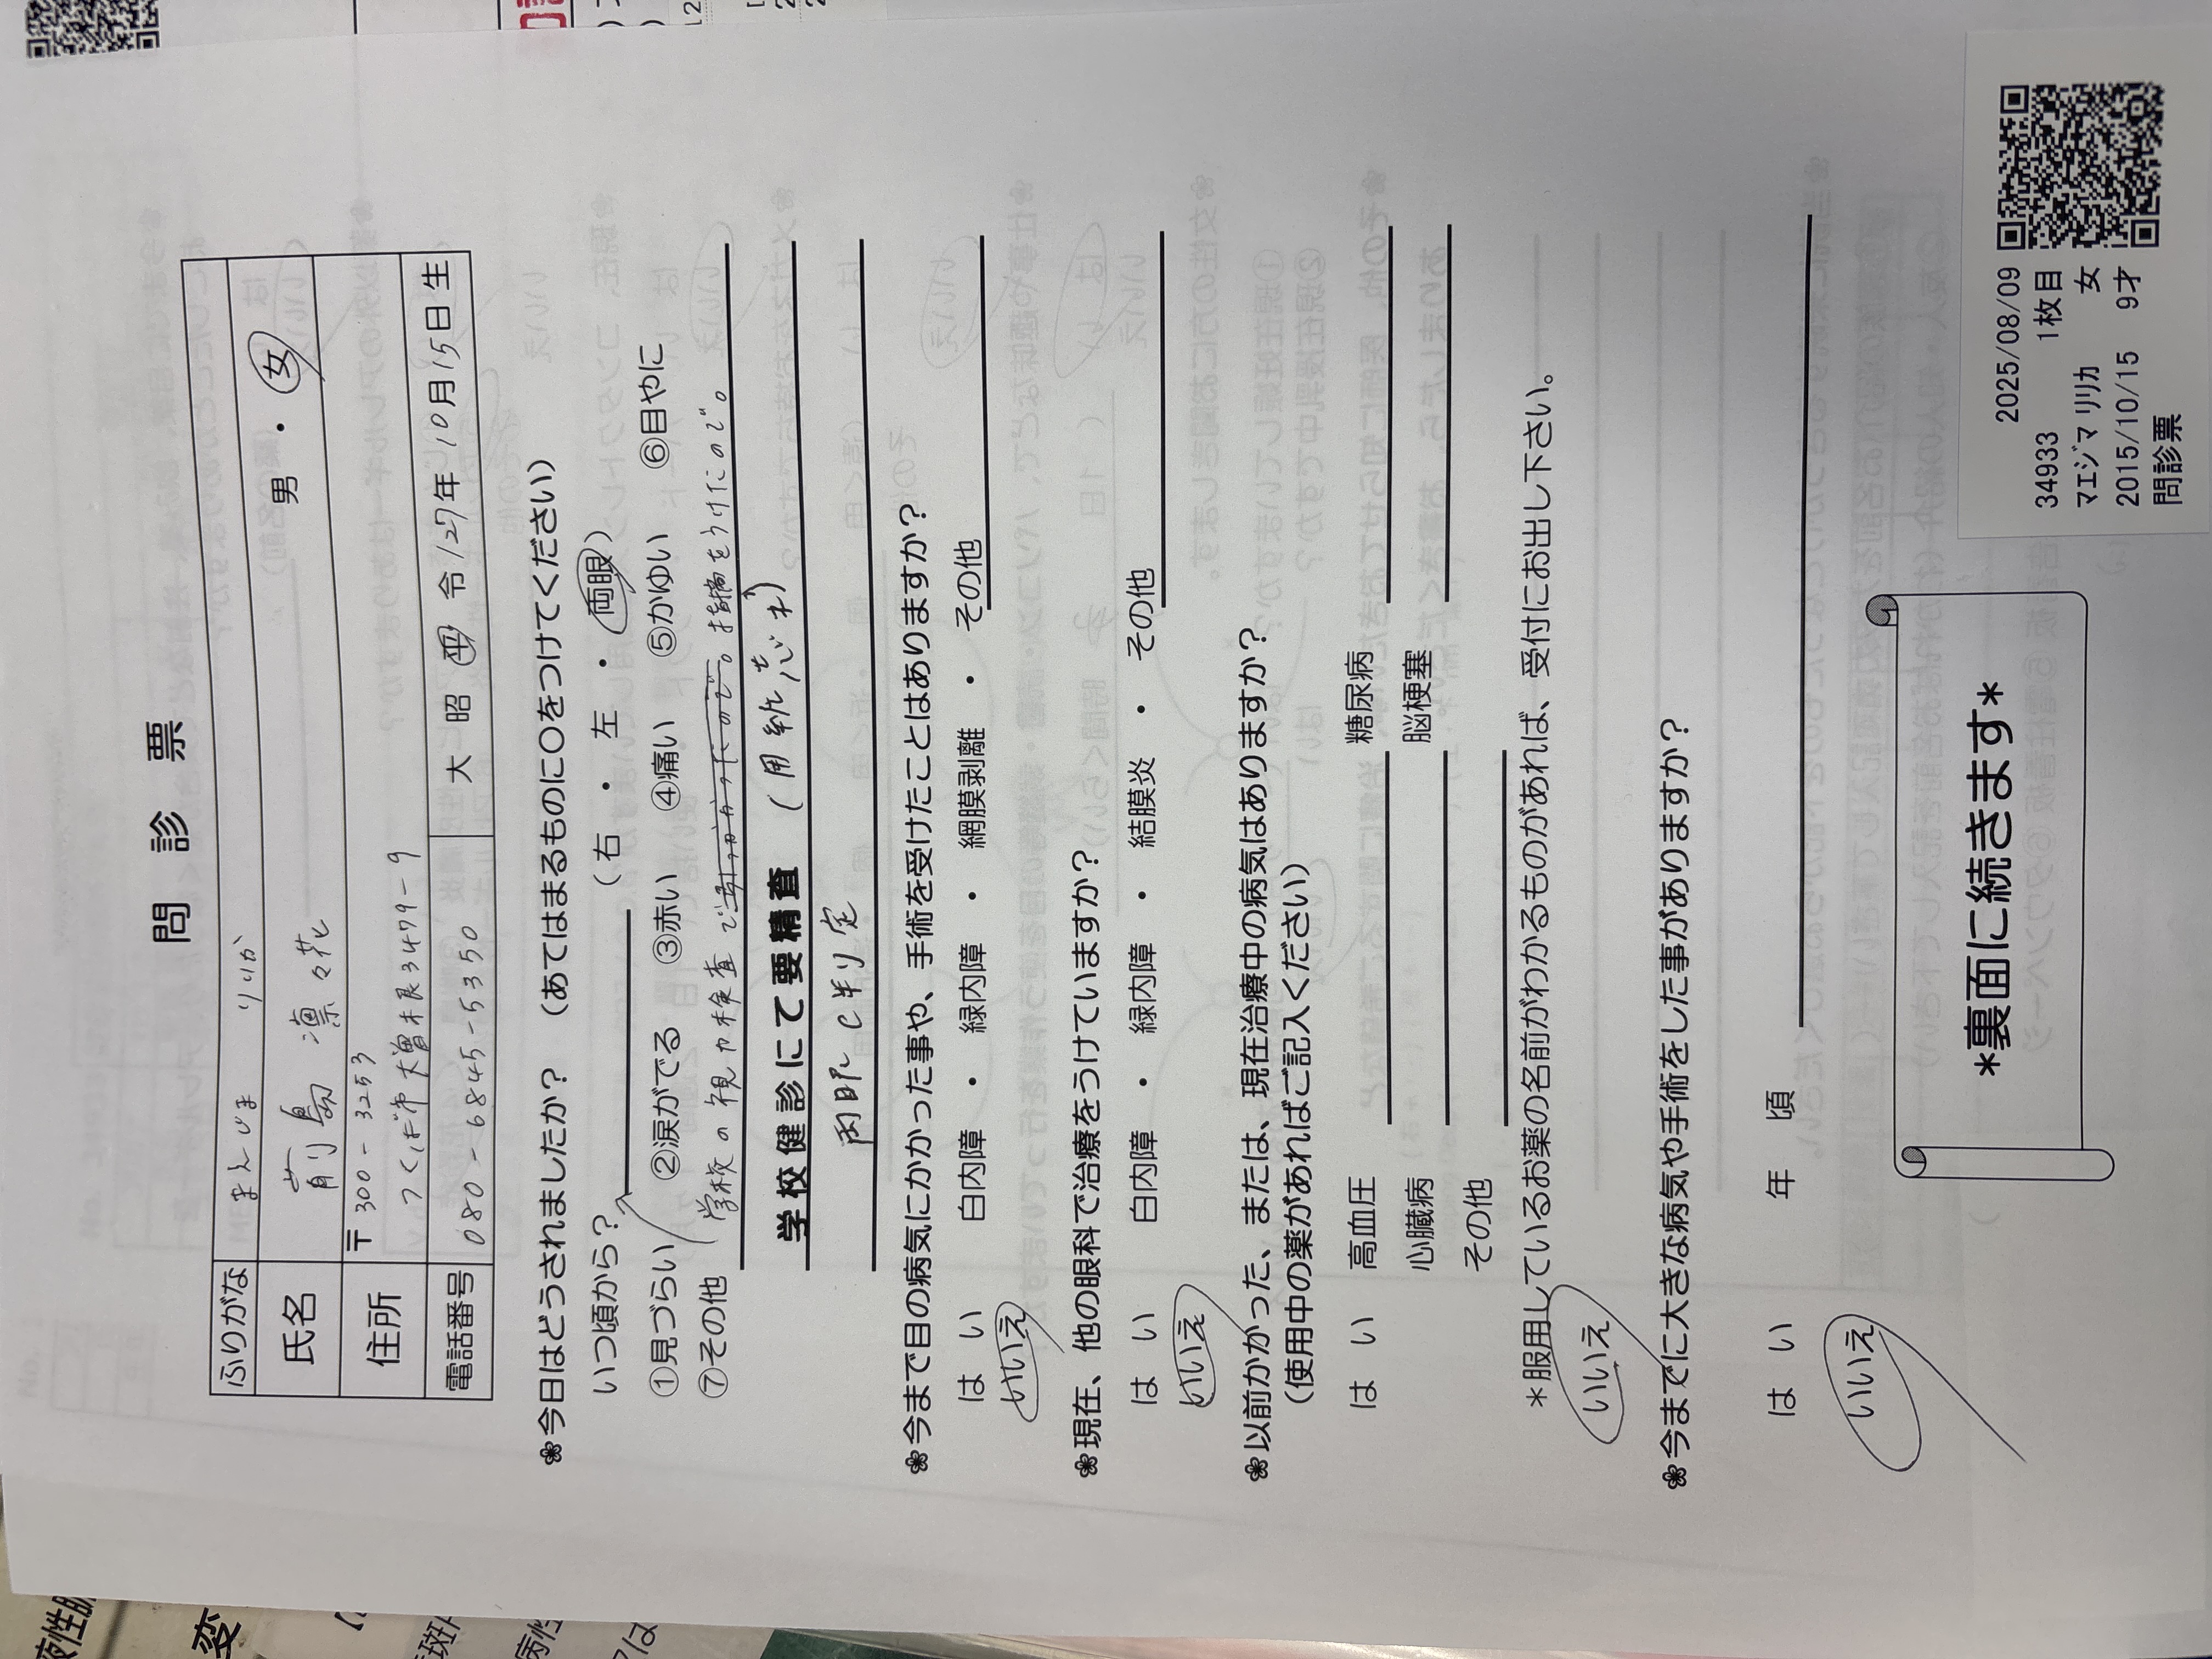 問 診 票
ふりがな まえじま りりか
氏名 前島 凛々花 男 ・ 女
住所 〒300-3253
つくば市大曽根3479-9
電話番号 080-6845-5350 大 昭 平 令 27年 10月15日生
❀今日はどうされましたか？ （あてはまるものに○をつけてください）
いつ頃から？ （ 右 ・ 左 ・ 両眼 ）
①見づらい ②涙がでる ③赤い ④痛い ⑤かゆい ⑥目やに
⑦その他 学校の視力検査で引っかかったので。指摘をうけたので。
学校健診にて要精査 （用紙忘れ）
両眼C判定
❀今まで目の病気にかかった事や、手術を受けたことはありますか？
は い 白内障 ・ 緑内障 ・ 網膜剥離 ・ その他
いいえ
❀現在、他の眼科で治療をうけていますか？
は い 白内障 ・ 緑内障 ・ 結膜炎 ・ その他
いいえ
❀以前かかった、または、現在治療中の病気はありますか？
（使用中の薬があればご記入ください）
は い 高血圧 糖尿病
心臓病 脳梗塞
その他
＊服用しているお薬の名前がわかるものがあれば、受付にお出し下さい。
いいえ
❀今までに大きな病気や手術をした事がありますか？
は い 年 頃
いいえ
*裏面に続きます*
2025/08/09
34933 1枚目
ﾏｴｼﾞﾏ ﾘﾘｶ 女
2015/10/15 9才
問診票